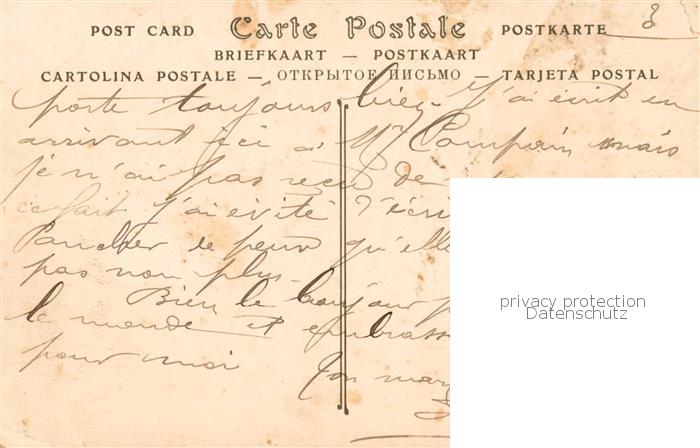 3
POST CARD Carte Postale POSTKARTE
BRIEFKAART — POSTKAART
CARTOLINA POSTALE — ОТКРЫТОЕ ПИСЬМО — TARJETA POSTAL
porte toujours bien. J'ai écrit en
arrivant ici à Mr mais
je n'ai pas reçu de
ce fait j'ai évité d'écri
de peur qu'elle
pas non plus.
Bien le bonjour
le monde et embrass
pour moi
Ton
privacy protection
Datenschutz